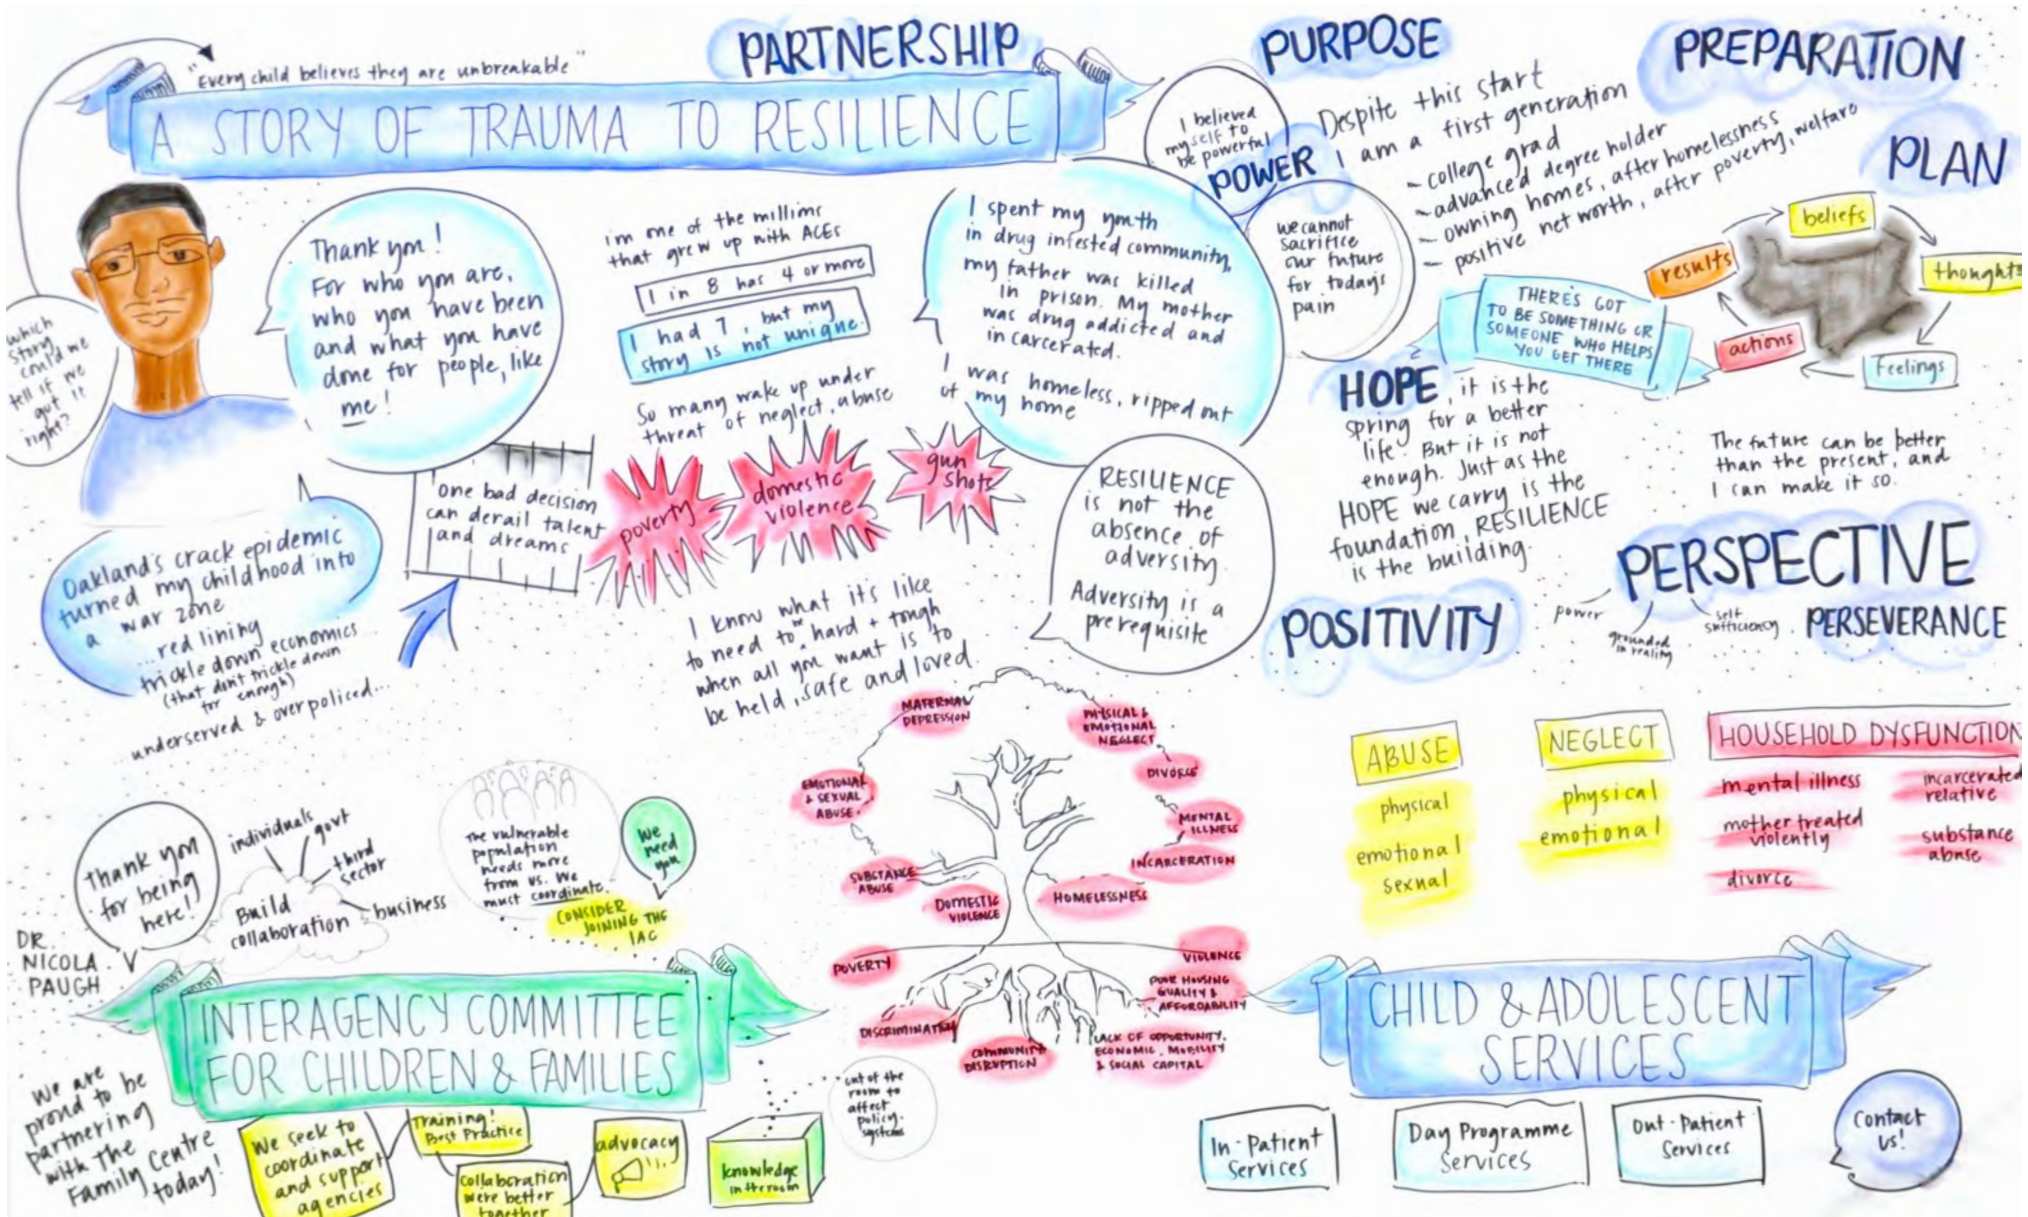 "Every child believes they are unbreakable"
A STORY OF TRAUMA TO RESILIENCE
PARTNERSHIP
which
story
could we
tell if we
got it
right?
Thank you!
For who you are,
who you have been
and what you have
done for people, like
me!
im one of the millims
that grew up with ACEs
1 in 8 has 4 or more
I had 7, but my
story is not unique.
So many wake up under
threat of neglect, abuse
poverty
domestic
violence
gun
shots
I spent my youth
in drug infested community,
my father was killed
in prison. My mother
was drug addicted and
incarcerated.
I was homeless, ripped out
of my home
one bad decision
can derail talent
and dreams
Oakland's crack epidemic
turned my childhood into
a war zone
...red lining
trickle down economics...
(that don't trickle down
enough)
...underserved & overpoliced...
I know what it's like
to need to be hard + tough
when all you want is to
be held, safe and loved
RESILIENCE
is not the
absence of
adversity.
Adversity is a
prerequisite
PURPOSE
I believed
myself to
be powerful
POWER
we cannot
sacrifice
our future
for todays
pain
Despite this start
I am a first generation
~ college grad
~ advanced degree holder
~ owning homes, after homelessness
~ positive net worth, after poverty, welfare
PREPARATION
PLAN
beliefs
thoughts
feelings
actions
results
THERE'S GOT
TO BE SOMETHING OR
SOMEONE WHO HELPS
YOU GET THERE
HOPE, it is the
spring for a better
life. But it is not
enough. Just as the
HOPE we carry is the
foundation, RESILIENCE
is the building.
The future can be better
than the present, and
I can make it so.
PERSPECTIVE
power
grounded
in reality
self
sufficiency
PERSEVERANCE
POSITIVITY
MATERNAL
DEPRESSION
PHYSICAL &
EMOTIONAL
NEGLECT
EMOTIONAL
& SEXUAL
ABUSE
DIVORCE
MENTAL
ILLNESS
SUBSTANCE
ABUSE
INCARCERATION
DOMESTIC
VIOLENCE
HOMELESSNESS
POVERTY
VIOLENCE
DISCRIMINATION
POOR HOUSING
QUALITY &
AFFORDABILITY
COMMUNITY
DISRUPTION
LACK OF OPPORTUNITY,
ECONOMIC, MOBILITY
& SOCIAL CAPITAL
ABUSE
physical
emotional
sexual
NEGLECT
physical
emotional
HOUSEHOLD DYSFUNCTION
mental illness
mother treated
violently
divorce
incarcerated
relative
substance
abuse
Thank you
for being
here!
DR.
NICOLA
PAUGH
individuals
govt
third
sector
business
Build
collaboration
The vulnerable
population
needs more
from us. We
must coordinate.
We
need
you
CONSIDER
JOINING THE
IAC
INTERAGENCY COMMITTEE
FOR CHILDREN & FAMILIES
We are
proud to be
partnering
with the
Family Centre
today!
We seek to
coordinate
and support
agencies
Training!
Best Practice
Collaboration
were better
together
advocacy
knowledge
in the room
out of the
room to
affect
policy.
systems
CHILD & ADOLESCENT
SERVICES
In-Patient
Services
Day Programme
Services
Out-Patient
Services
Contact
us!